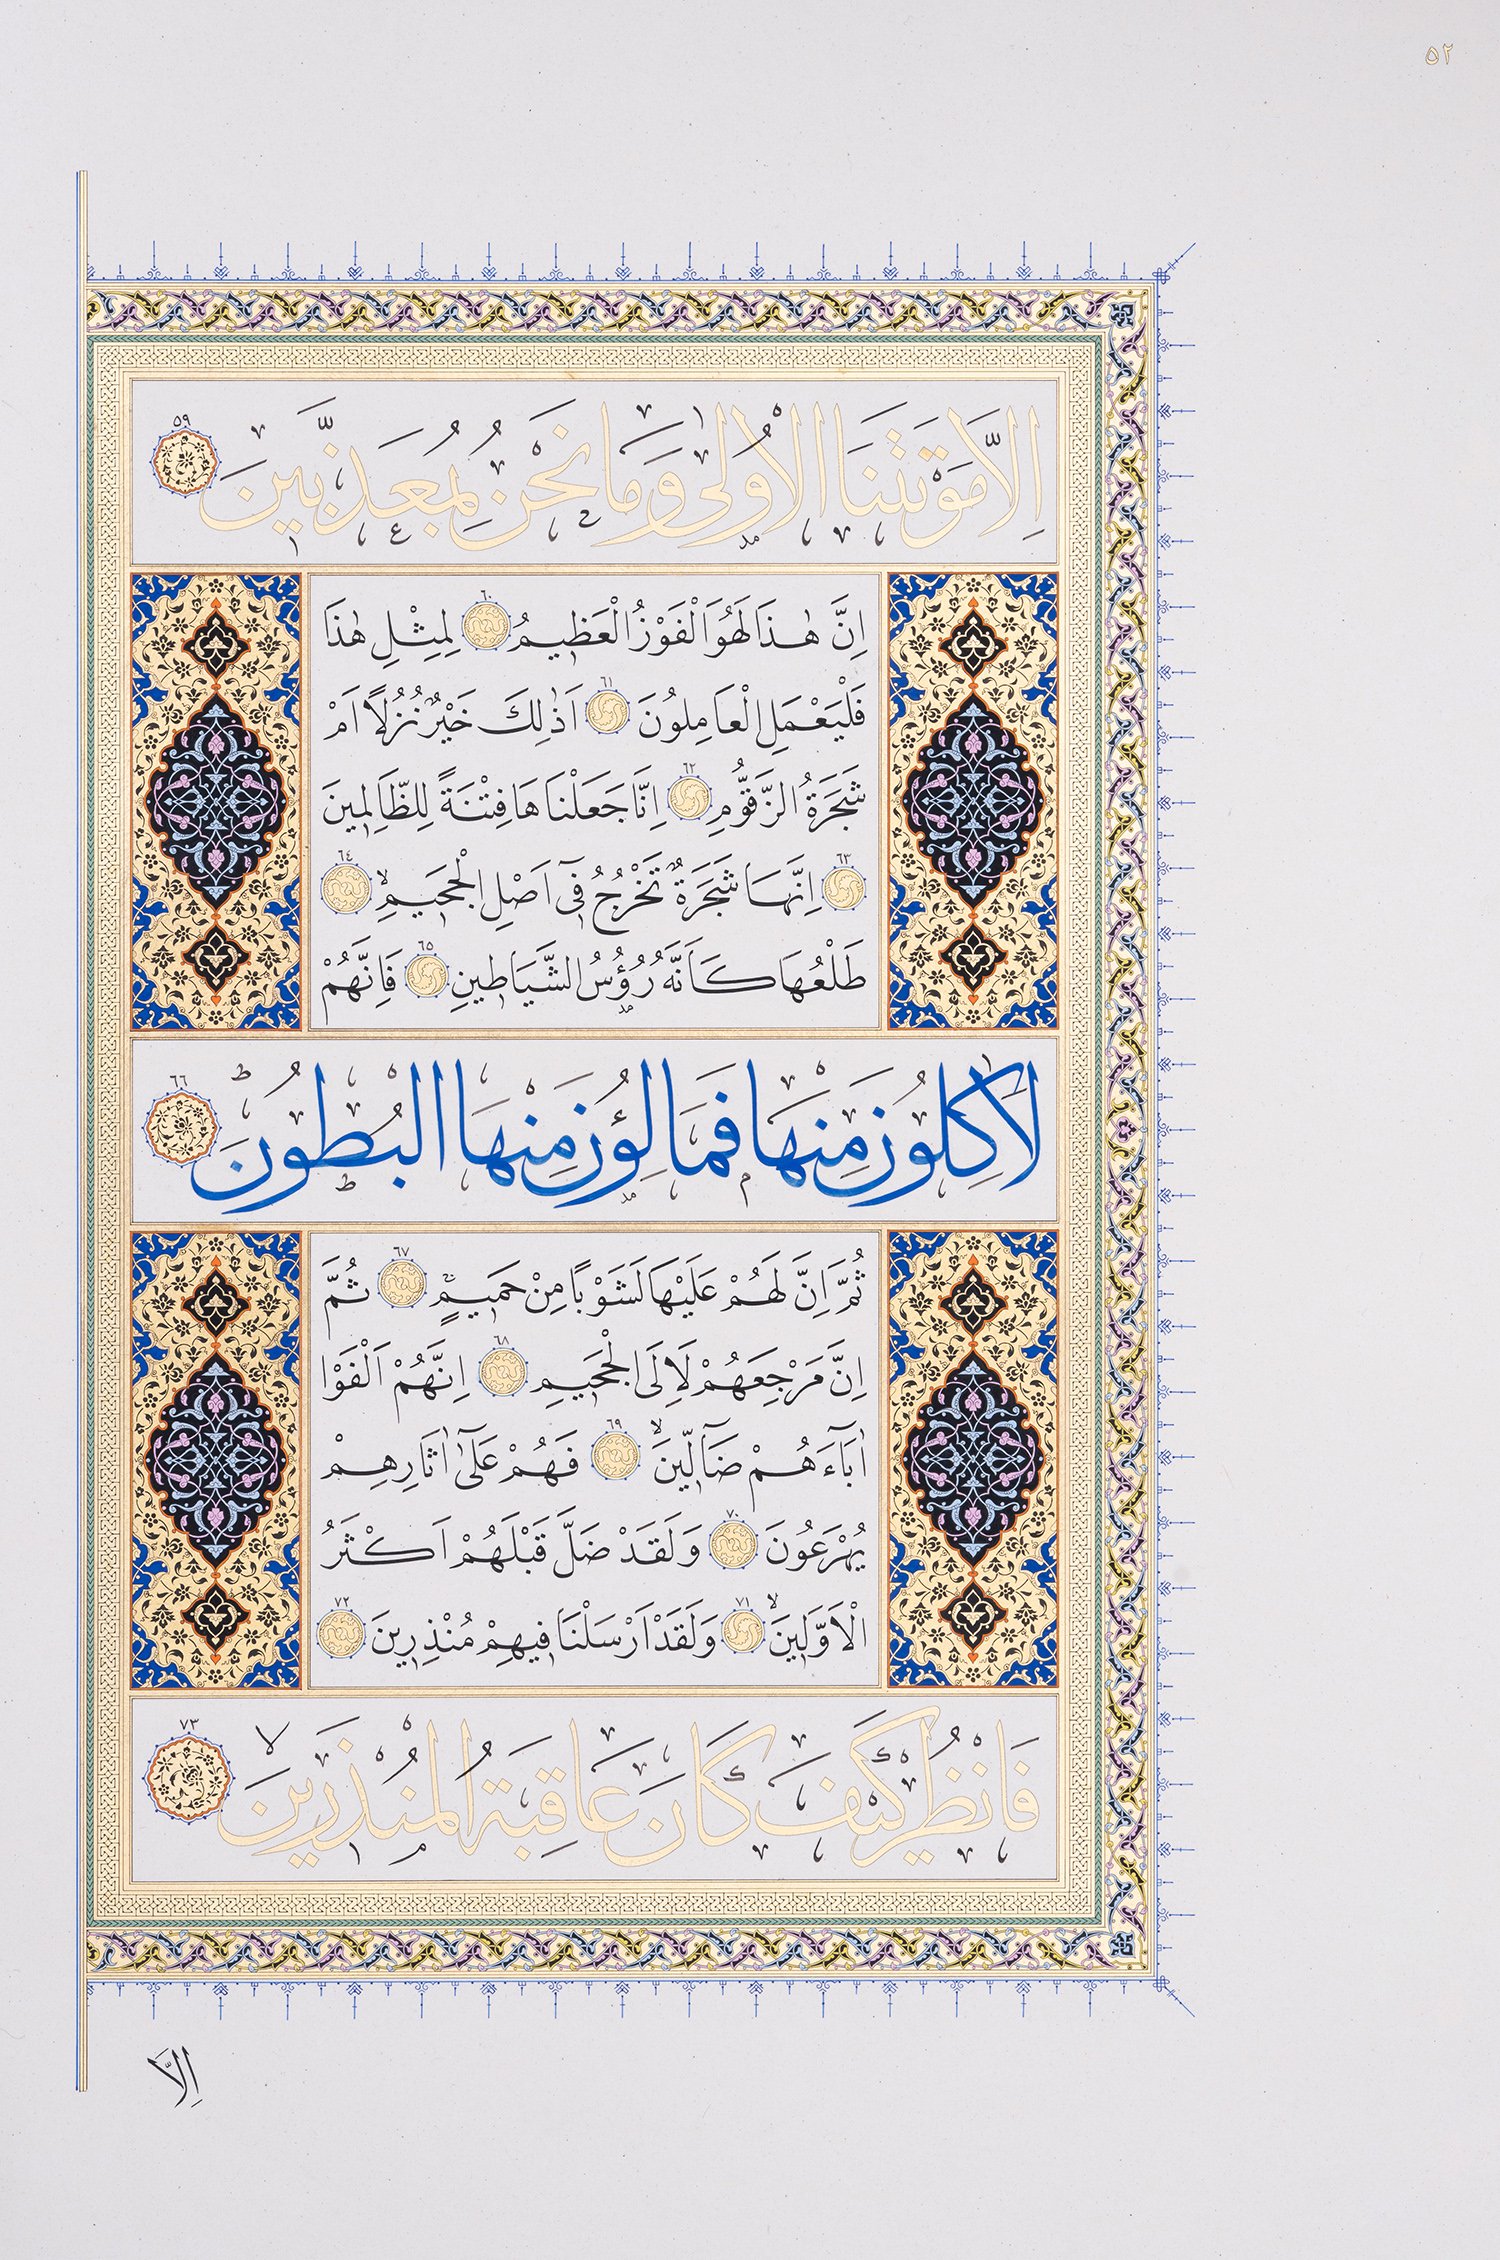 ٥٢
اِلَّا مَوْتَتَنَا الْاُو۫لٰى وَمَا نَحْنُ بِمُعَذَّبٖينَ ٥٩
اِنَّ هٰذَا لَهُوَ الْفَوْزُ الْعَظٖيمُ ٦٠ لِمِثْلِ هٰذَا
فَلْيَعْمَلِ الْعَامِلُونَ ٦١ اَذٰلِكَ خَيْرٌ نُزُلًا اَمْ
شَجَرَةُ الزَّقُّومِ ٦٢ اِنَّا جَعَلْنَاهَا فِتْنَةً لِلظَّالِمٖينَ
٦٣ اِنَّهَا شَجَرَةٌ تَخْرُجُ فٖٓي اَصْلِ الْجَحٖيمِۙ ٦٤
طَلْعُهَا كَاَنَّهُ رُؤُ۫سُ الشَّيَاطٖينِ ٦٥ فَاِنَّهُمْ
لَاٰكِلُونَ مِنْهَا فَمَالِؤُ۫نَ مِنْهَا الْبُطُونَؕ ٦٦
ثُمَّ اِنَّ لَهُمْ عَلَيْهَا لَشَوْبًا مِنْ حَمٖيمٍۚ ٦٧ ثُمَّ
اِنَّ مَرْجِعَهُمْ لَاِلَى الْجَحٖيمِ ٦٨ اِنَّهُمْ اَلْفَوْا
اٰبَٓاءَهُمْ ضَٓالّٖينَۙ ٦٩ فَهُمْ عَلٰٓى اٰثَارِهِمْ
يُهْرَعُونَ ٧٠ وَلَقَدْ ضَلَّ قَبْلَهُمْ اَكْثَرُ
الْاَوَّلٖينَۙ ٧١ وَلَقَدْ اَرْسَلْنَا فٖيهِمْ مُنْذِرٖينَ ٧٢
فَانْظُرْ كَيْفَ كَانَ عَاقِبَةُ الْمُنْذَرٖينَۙ ٧٣
اِلَّا